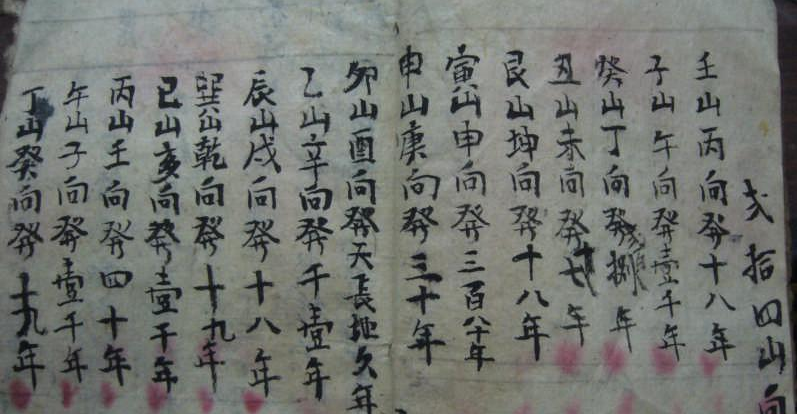 弍拾四山向
壬山丙向發十八年
子山午向發壹千年
癸山丁向發捌年
丑山未向發七年
艮山坤向發十八年
寅山申向發三百八十年
申山庚向發三十年
卯山酉向發天長地久年
乙山辛向發千壹年
辰山戌向發十八年
巽山乾向發十九年
巳山亥向發壹千年
丙山壬向發四十年
午山子向發壹千年
丁山癸向發十九年